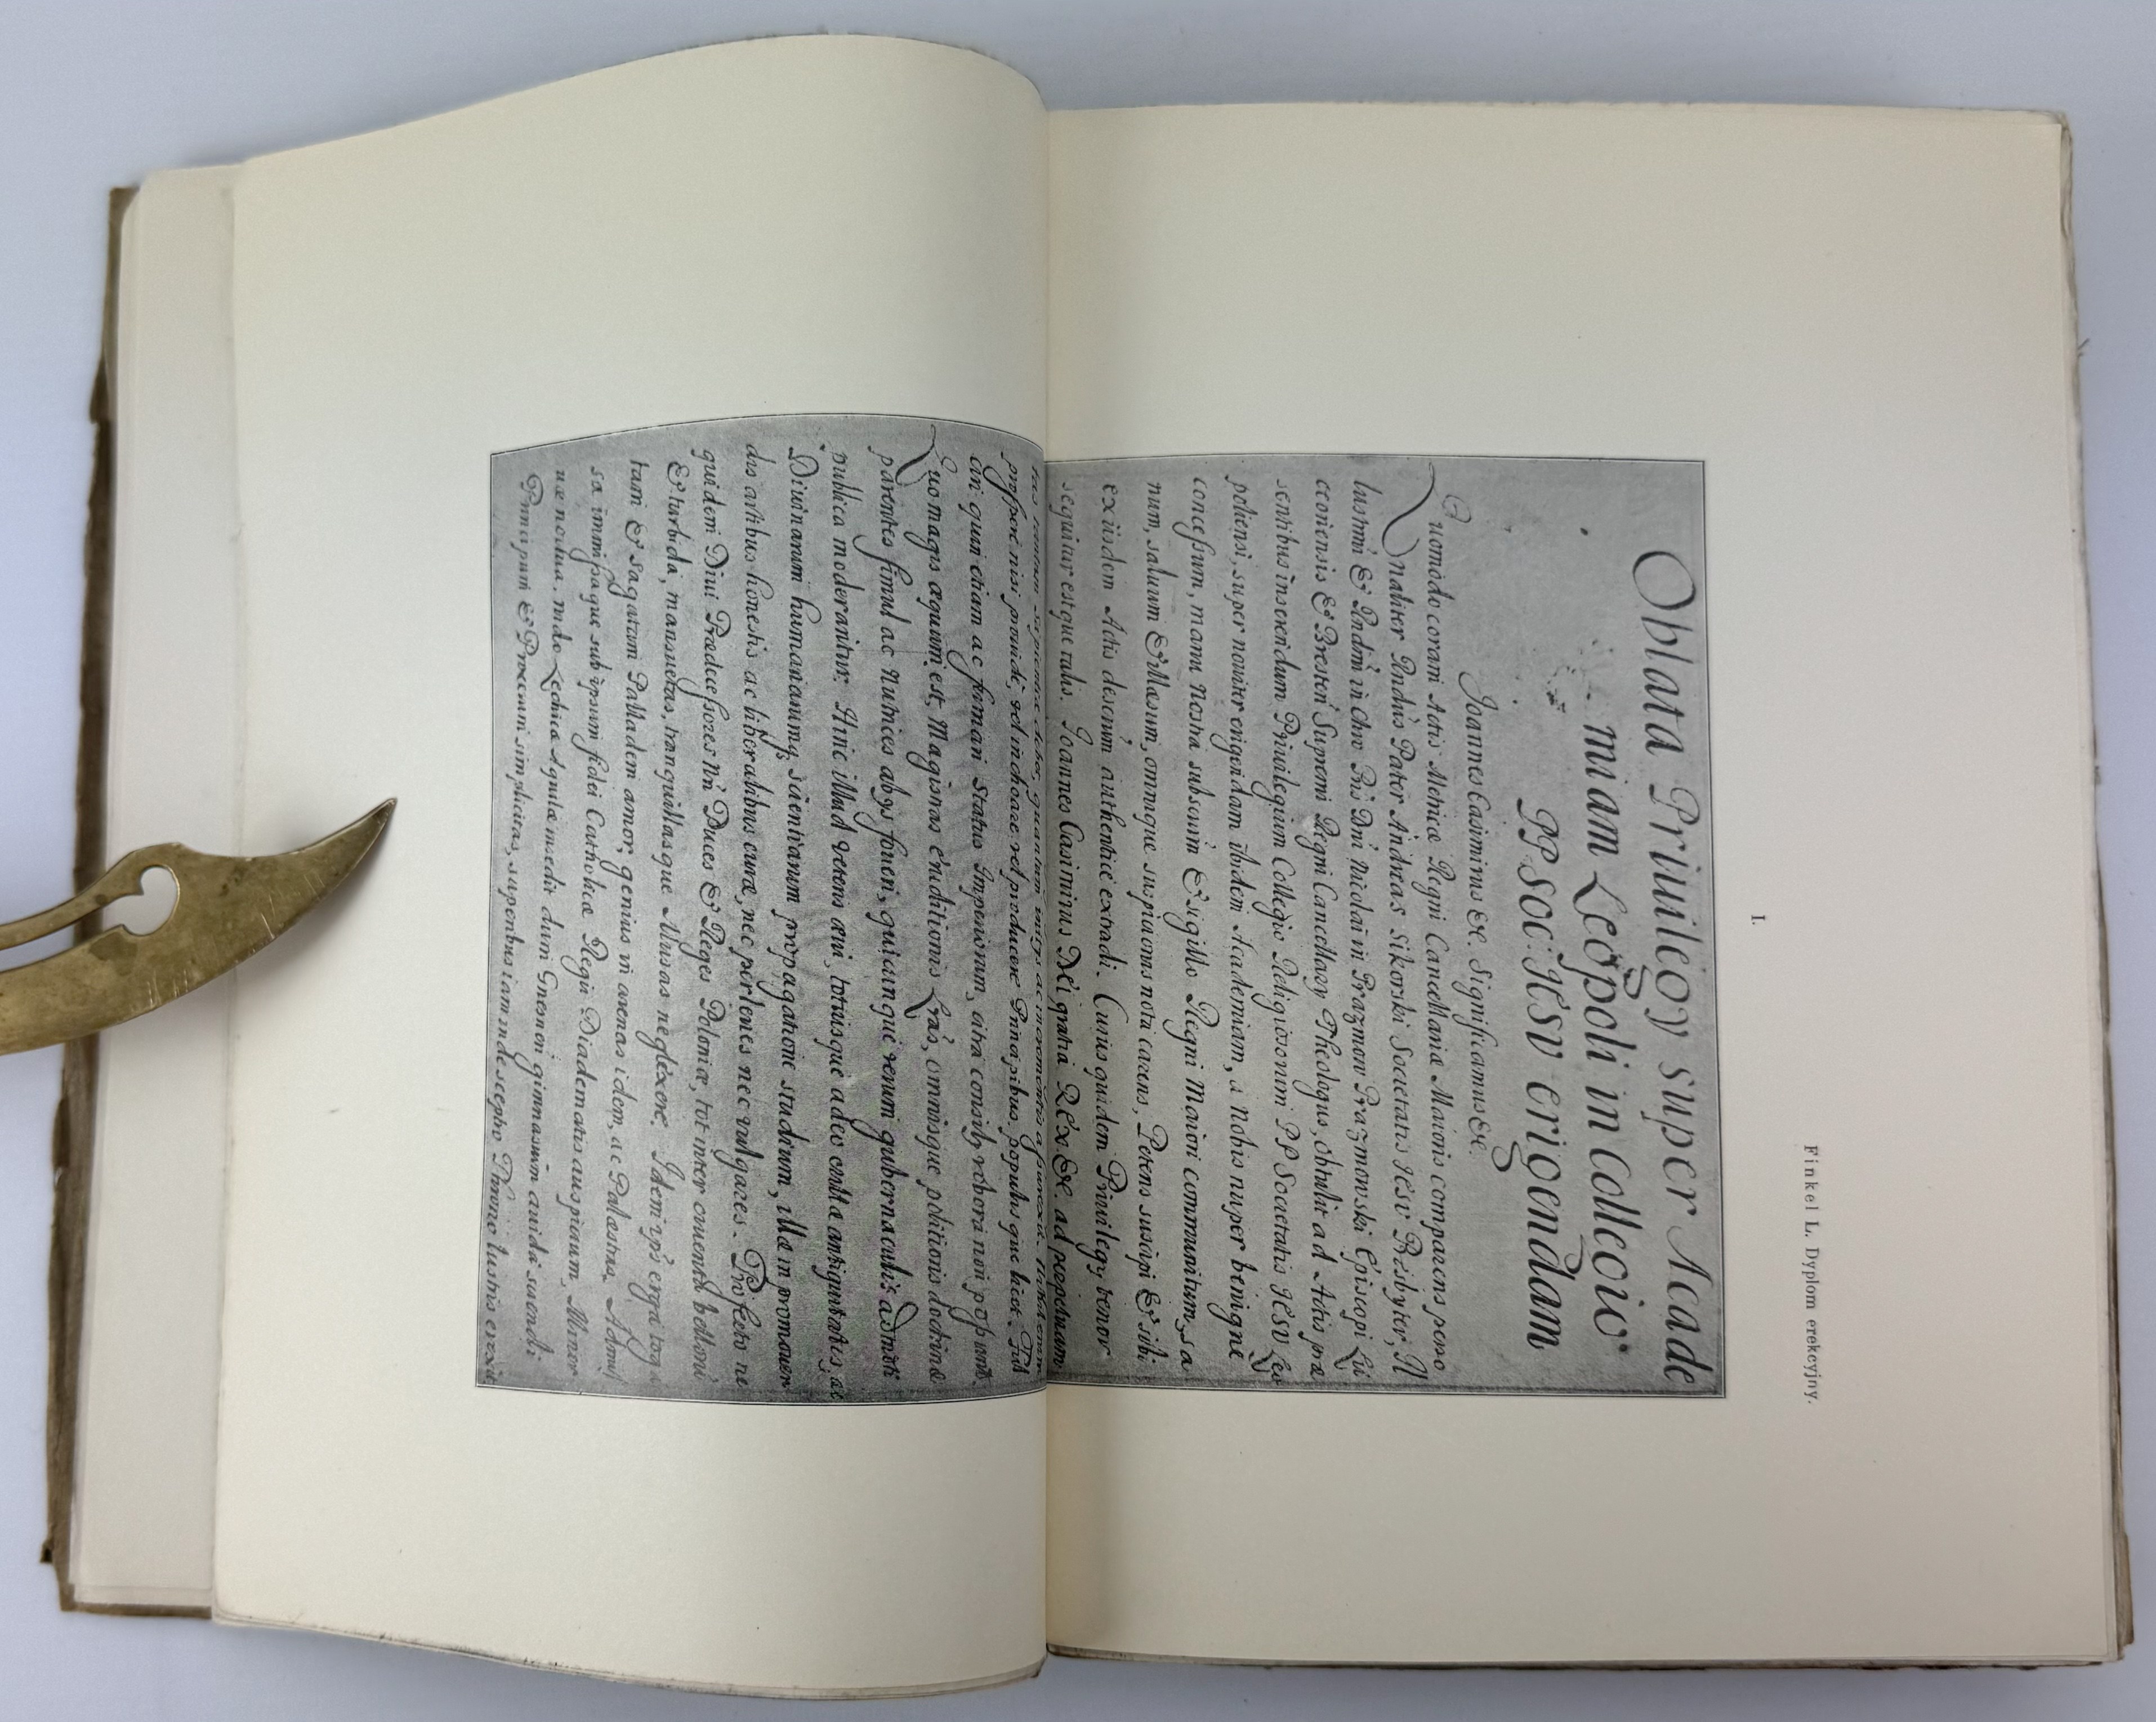 Finkel L. Dyplom erekcyjny.
I.
Oblata Priuilegy super Acade
miam Leopoli in Collegio
PP Soc: IESV erigendam
Joannes Casimirus &c. Significamus &c.
Quomodo coram Actis Metricæ Regni Cancellariæ Maioris comparens perso
naliter Rndus Pater Andreas Sikorski Societatis IESV Præsbyter, Il
lustrmi & Rndmi in Chro Pris Dni Nicolai in Prazmow Prazmowski Episcopi Lu
ceoriensis & Bresten Supremi Regni Cancellary Theologus, obtulit ad Actis præ
sentibus inserendum Priuilegium Collegio Religiosorum PP Societatis IESV Leo
poliensi, super nouiter erigendam ibidem Academiam, a Nobis nuper benigne
concessum, manu Nostra subscrim & sigillo Regni Maiori communitum, sa
num, saluum & illæsum, omnique suspicionis nota carens, Petens suscipi & sibi
exijsdem Actis descrim authentice extradi. Cuius quidem Priuilegy tenor
sequitur estque talis. Joannes Casimirus DEi gratia REx &c. ad perpetuam
prospere nisi prouide, vel inchoare vel producere Principibus, populisque licet.
cin quan etiam ac firmari Status Imperiorum, citra consily robora non possunt.
Quo magis æquum est, Magistras eruditionis Lras, omnisque politioris doctrinæ
parentes simul ac Nutrices abijs foueri, quicunque rerum gubernaculis admoti
publica moderantur. Hinc illud veteris æui, totiusque adeo cultæ antiquitatis, ac
Diuinarum humanarumq scientiarum propagatione studium, illæ in promouen
dis artibus honestis ac liberalibus curæ, nec perlenes nec vulgares. Profecto ne
quidem Diui Prædecessores Nri Duces & Reges Poloniæ, tot inter cruenta belloru
& turbida, mansuetas, tranquillasque Musas neglexere. Idem ipsis erga tog
tam & sagatam Palladem amor, genius in arenas idem, ac Palæstras. Admis
sa immipaque sub ipsum fidei Catholicæ Regij Diadematis auspicium Miner
uæ noctua, nido Lechicæ Aquilæ insedit dum Gnesnen gimnasium auida suendi
Principum & Procerum simplicitas, superibus iam inde sceptro Primis lustris erexit